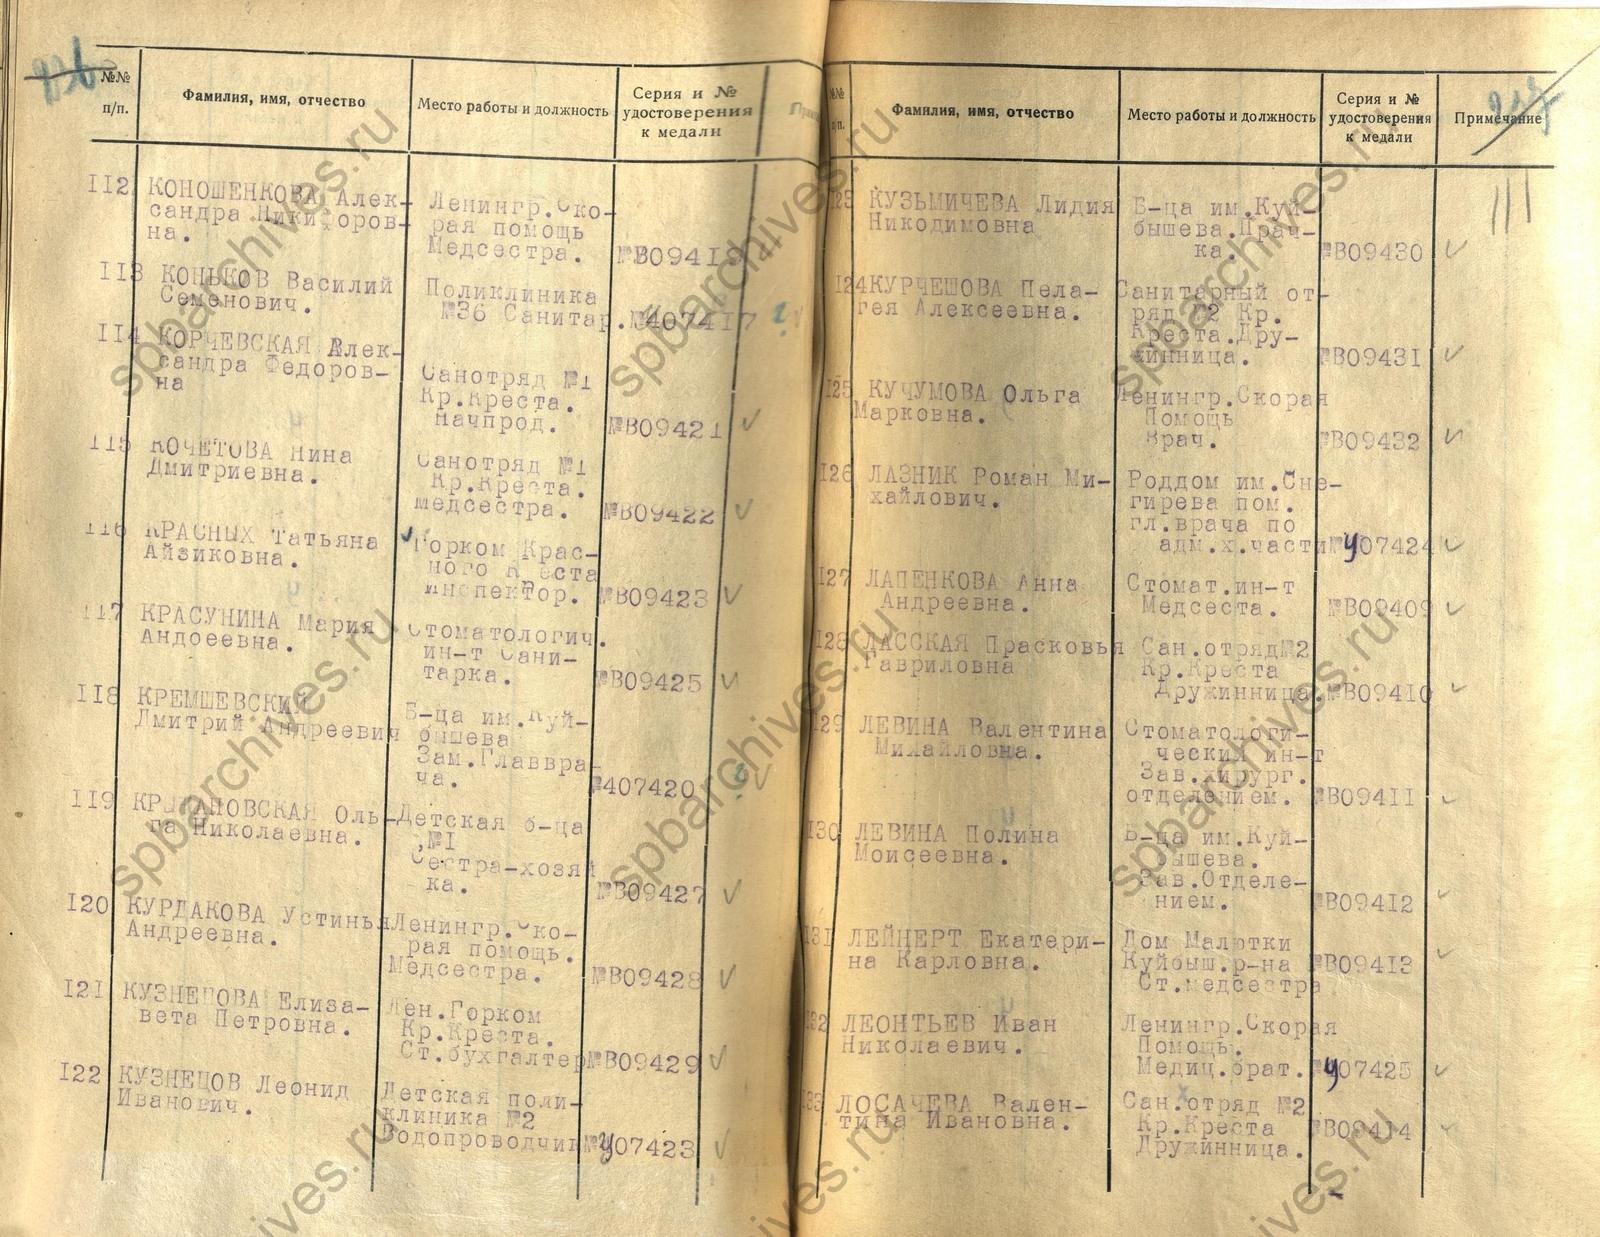 №№ п/п.
Фамилия, имя, отчество
Место работы и должность
Серия и №
удостоверения
к медали
112 КОНОШЕНКОВА Алек-
сандра Никифоров-
на.
Ленингр.Ско-
рая помощь
Медсестра. №В09419
113 КОНЬКОВ Василий
Семенович.
Поликлиника
№36 Санитар. №407417
114 КОРЧЕВСКАЯ Алек-
сандра Федоров-
на
Санотряд №1
Кр.Креста.
Начпрод. №В09421
115 КОЧЕТОВА Нина
Дмитриевна.
Санотряд №1
Кр.Креста.
медсестра. №В09422
116 КРАСНЫХ Татьяна
Айзиковна.
Горком Крас-
ного К еста
Инспектор. №В09423
117 КРАСУНИНА Мария
Андоеевна.
Стоматологич.
ин-т Сани-
тарка. №В09425
118 КРЕМШЕВСКИЙ
Дмитрий Андреевич
Б-ца им.Куй-
бышева
Зам.Главвра-
ча. №407420
119
Оль-
га Николаевна.
Детская б-ца
№1
Сестра-хозяй
ка. №В09427
120 КУРДАКОВА Устинья
Андреевна.
Ленингр.Ско-
рая помощь.
Медсестра. №В09428
121 КУЗНЕЦОВА Елиза-
вета Петровна.
Лен.Горком
Кр.Креста.
Ст.бухгалтер №В09429
122 КУЗНЕЦОВ Леонид
Иванович.
Детская поли-
клиника №2
Водопроводчик №У07423
№№ п/п.
Фамилия, имя, отчество
Место работы и должность
Серия и №
удостоверения
к медали
Примечание
111
123 КУЗЬМИЧЕВА Лидия
Никодимовна
Б-ца им.Куй-
бышева.Прач-
ка. №В09430
124 КУРЧЕШОВА Пела-
гея Алексеевна.
Санитарный от-
ряд Кр.
Креста.Дру-
жинница. №В09431
125 КУЧУМОВА Ольга
Марковна.
Ленингр.Скорая
Помощь
Врач. №В09432
126 ЛАЗНИК Роман Ми-
хайлович.
Роддом им.Сне-
гирева пом.
гл.врача по
адм.х.части №У07424
127 ЛАПЕНКОВА Анна
Андреевна.
Стомат.ин-т
Медсеста. №В09409
128 ЛАССКАЯ Прасковья
Гавриловна
Сан.отряд№2
Кр.Креста
Дружинница. №В09410
129 ЛЕВИНА Валентина
Михайловна.
Стоматологи-
ческий ин-т
Зав.хирург.
отделением. №В09411
130 ЛЕВИНА Полина
Моисеевна.
Б-ца им.Куй-
бышева.
Зав.Отделе-
нием. №В09412
131 ЛЕЙНЕРТ Екатери-
на Карловна.
Дом Малютки
Куйбыш.р-на №В09413
Ст.медсестра
132 ЛЕОНТЬЕВ Иван
Николаевич.
Ленингр.Скорая
Помощь.
Медиц.брат. №У07425
133 ЛОСАЧЕВА Вален-
тина Ивановна.
Сан.отряд №2
Кр.Креста №В09414
Дружинница.
spbarchives.ru